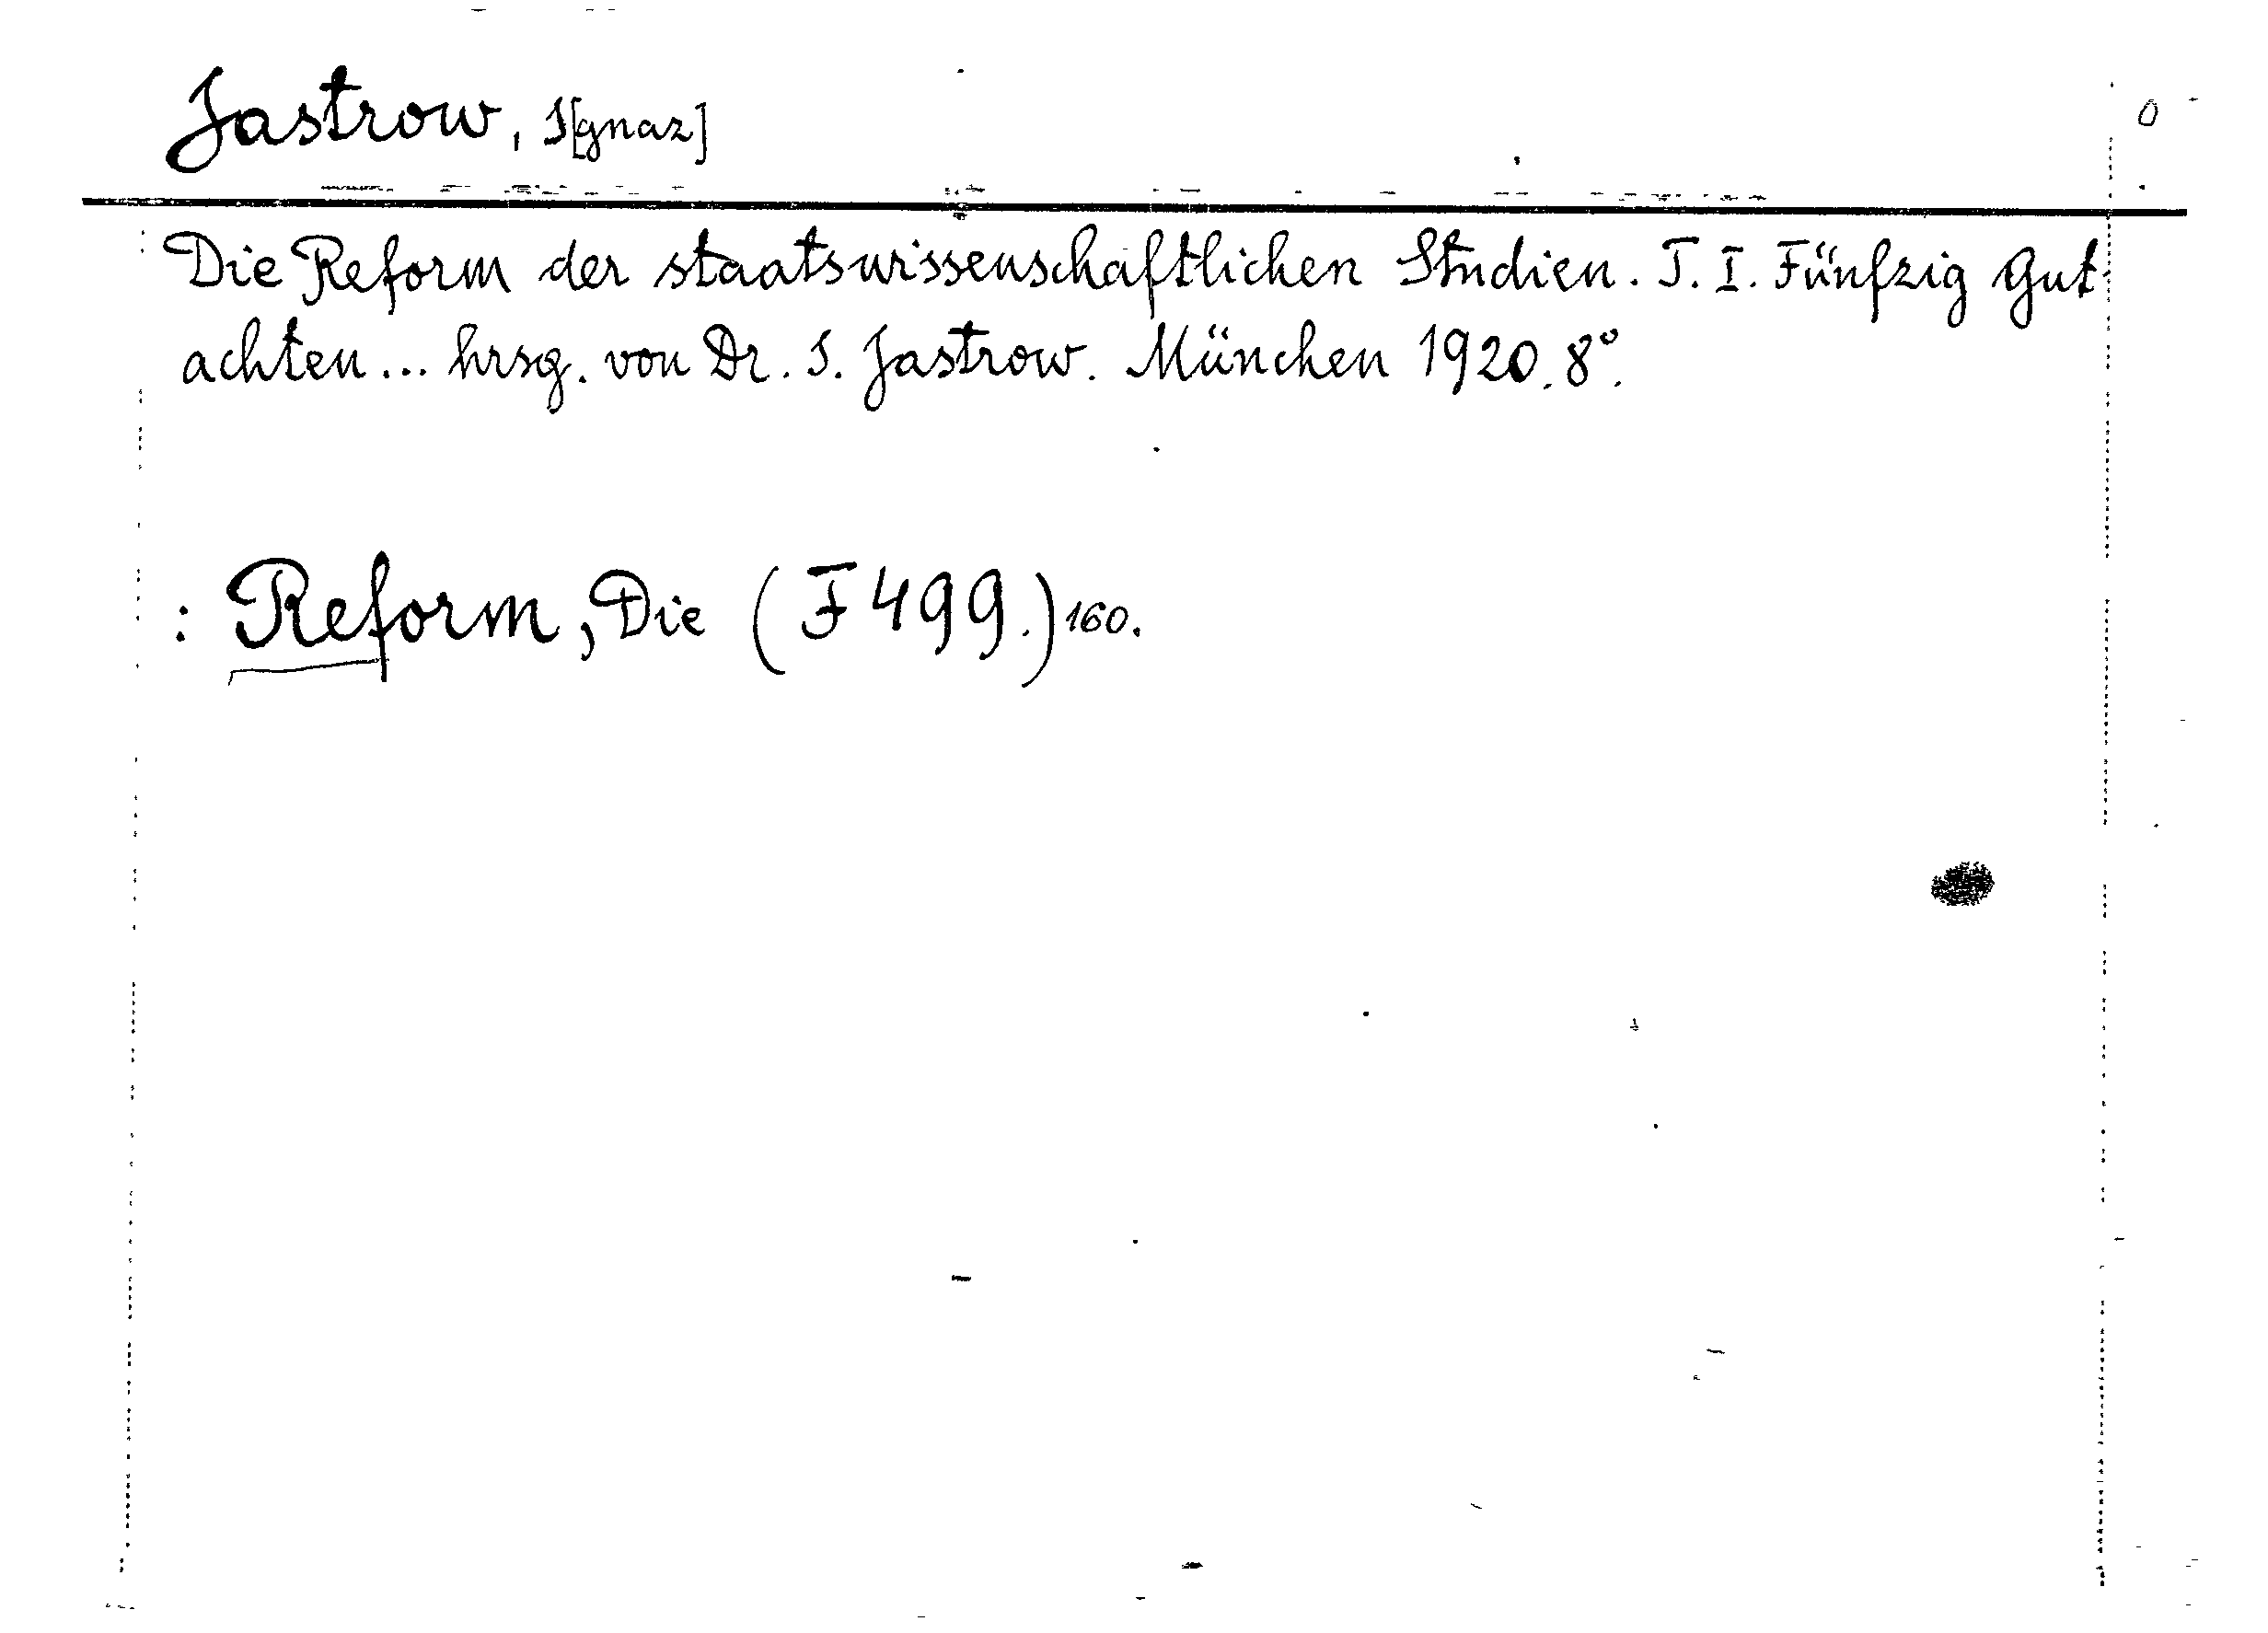 Jastrow, I[gnaz]
0
Die Reform der staatswissenschaftlichen Studien. T. I. Fünfzig Gut-
achten... hrsg. von Dr. I. Jastrow. München 1920. 8°.
: Reform, Die (F 499.) 160.